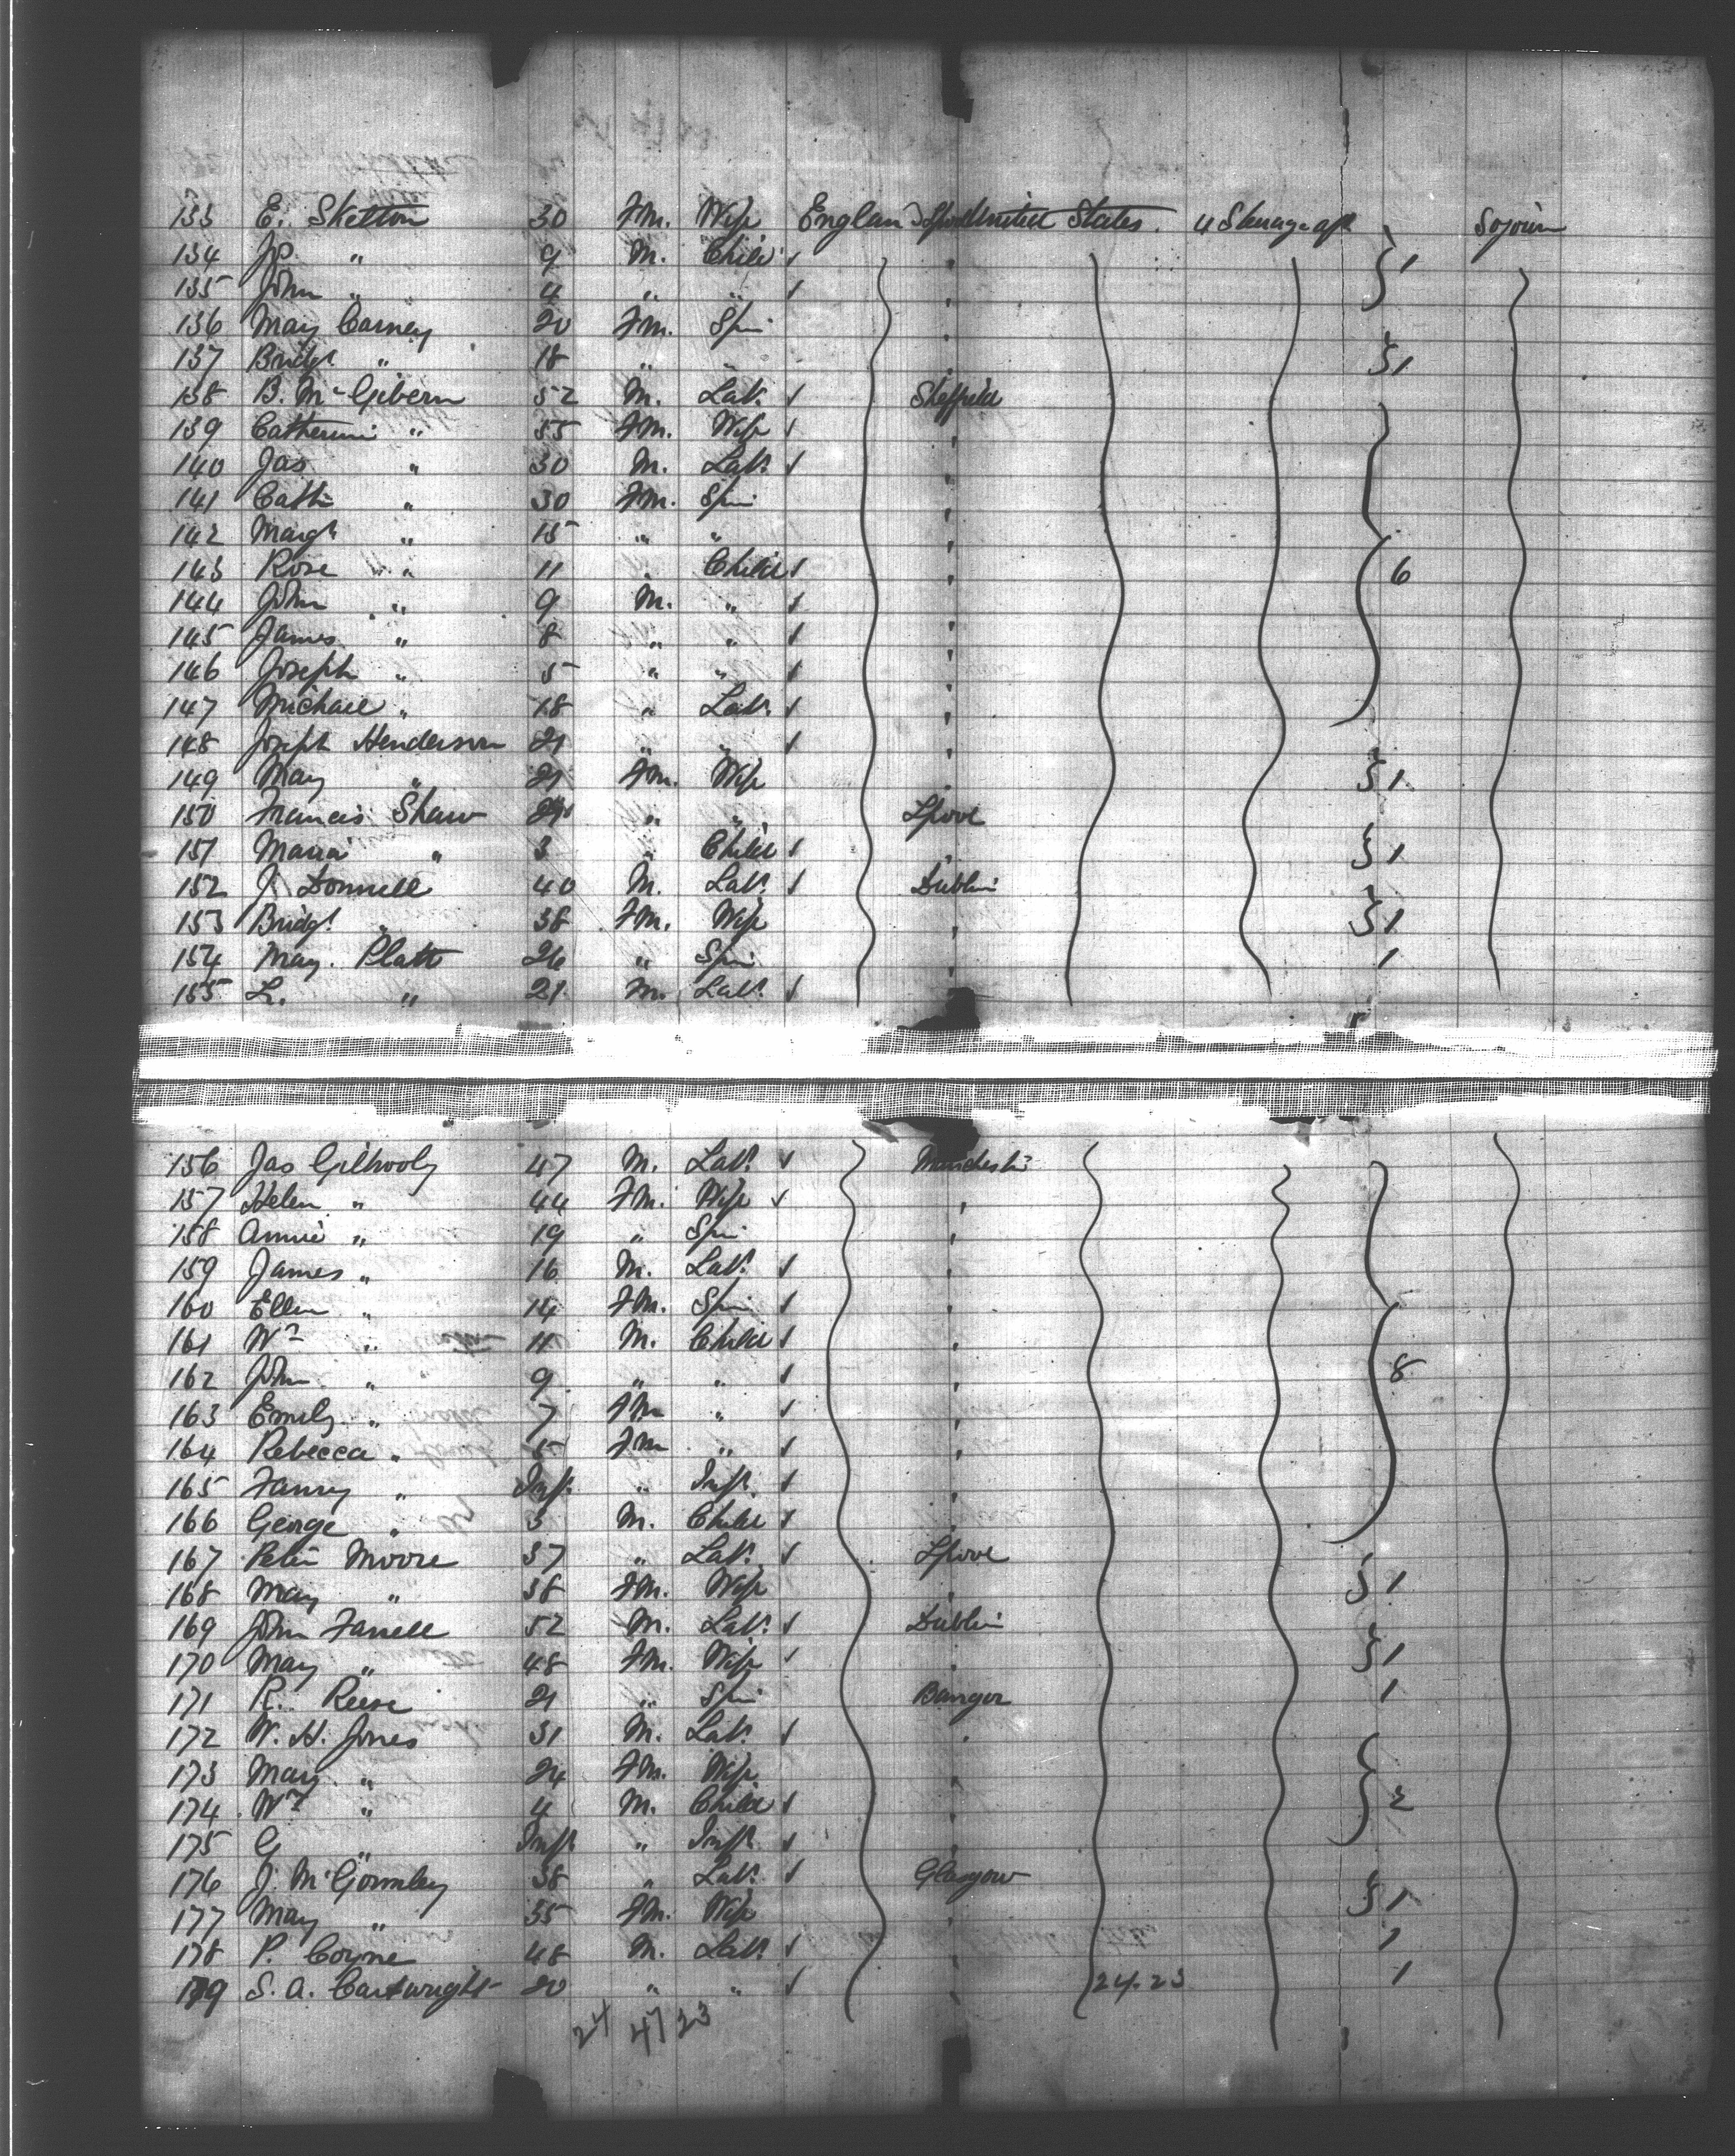 133 E. Skelton 30 Fm. Wife England Lpool United States. 4 Steerage aft Sojourn
134 Jos. " 9 M. Child ✓ " } 1
135 John " 4 " " ✓ "
136 Mary Carney 20 Fm. Spin "
137 Bridgt " 18 " " " } 1
138 B. McGibern 52 M. Labr ✓ Sheffield
139 Catherine " 55 Fm. Wife ✓ "
140 Jas " 30 M. Labr ✓ "
141 Cathe " 30 Fm. Spin "
142 Margt " 15 " " "
143 Rose " 11 " Child ✓ " } 6
144 John " 9 M. " ✓ "
145 James " 8 " " ✓ "
146 Joseph " 5 " " ✓ "
147 Michael " 18 " Labr ✓ "
148 Joseph Henderson 21 " " ✓ "
149 Mary " 21 Fm. Wife " } 1
150 Francis Shaw 24 " " Lpool
151 Maria " 3 " Child ✓ " } 1
152 J. Donnell 40 M. Labr ✓ Dublin
153 Bridgt " 38 Fm. Wife " } 1
154 Mary Platt 26 " Spin " 1
155 L. " 21 M. Labr ✓ "
156 Jas Gilhooly 47 M. Labr ✓ Manchester
157 Helen " 44 Fm. Wife ✓ "
158 Annie " 19 " Spin "
159 James " 16 M. Labr ✓ "
160 Ellen " 14 Fm. Spin ✓ "
161 Wm " 11 M. Child ✓ "
162 John " 9 " " ✓ " } 8
163 Emily " 7 Fm " ✓ "
164 Rebecca " 5 Fm " ✓ "
165 Fanny " Inft. " Inft. ✓ "
166 George " 3 M. Child ✓ "
167 Peter Moore 37 " Labr ✓ Lpool
168 Mary " 38 Fm. Wife " } 1
169 John Farrell 52 M. Labr ✓ Dublin
170 Mary " 48 Fm. Wife ✓ " } 1
171 R. Reese 21 " Spin Bangor 1
172 W. H. Jones 31 M. Labr ✓ "
173 Mary " 24 Fm. Wife
174 Wm " 4 M. Child ✓ } 2
175 G " Inft. " Inft ✓
176 J. McGormley 38 " Labr ✓ Glasgow
177 Mary " 35 Fm. Wife " } 1
178 P. Coyne 48 M. Labr ✓ " 1
179 S. A. Cartwright 20 " " ✓ " 24.23 1
24 47 23